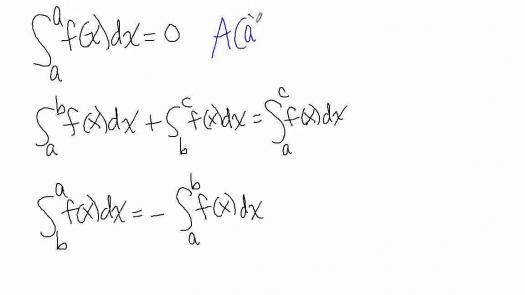 ∫_a^a f(x)dx = 0 A(a
∫_a^b f(x)dx + ∫_b^c f(x)dx = ∫_a^c f(x)dx
∫_b^a f(x)dx = - ∫_a^b f(x)dx